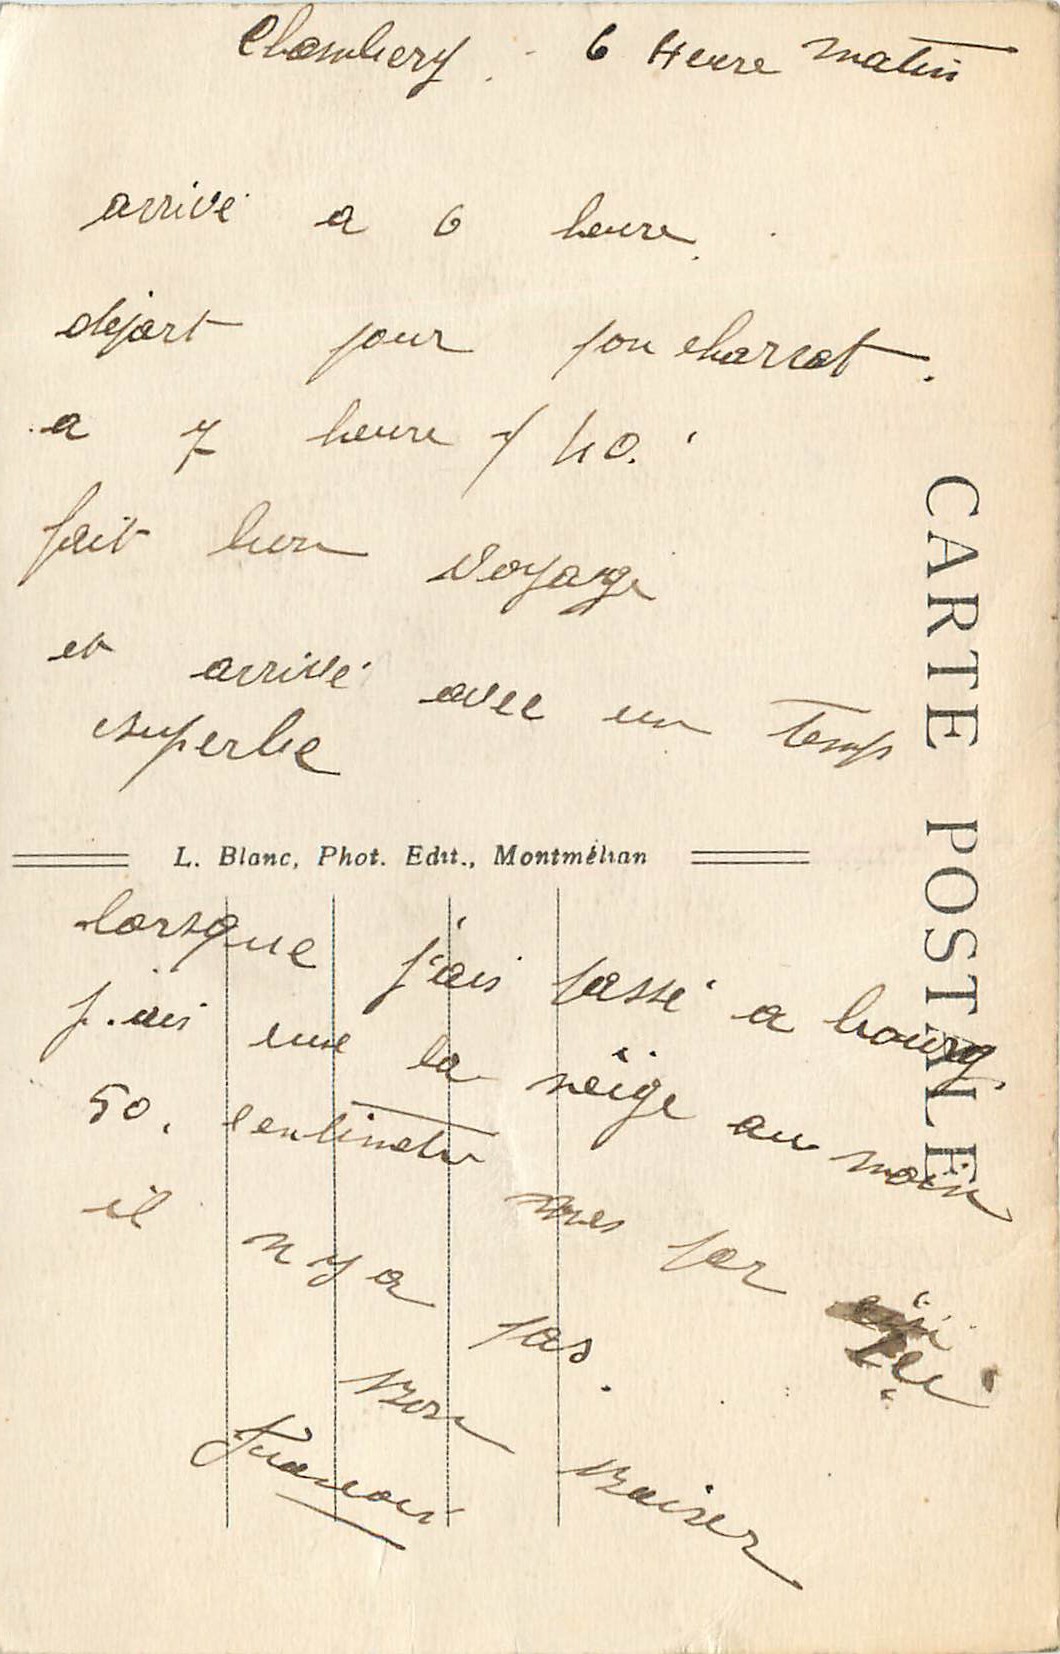 Chambery - 6 Heure matin
arrivé a 6 heure.
départ pour pon charrat.
a 7 heure / 40.
fait bon voyage
et arrivé avec un temps
superbe
CARTE POSTALE
L. Blanc, Phot. Edit., Montmélian
lorsque j'ais passé a bourg
j'ais vue la neige au moin
50. centimetre mes par
ici
il n y a pas.
Bon Baiser
Francois